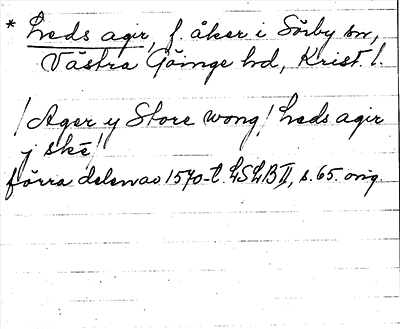 * Leds agir, f. åker i Sörby sn,
Västra Göinge hd, Krist. l.
/Ager y Store wong/ Leds agir
y skē/
förra delen av 1570-t. LSLB II, s. 65. orig.